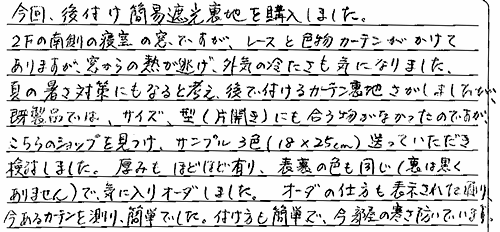 今回、後付け簡易遮光裏地を購入しました。
2Fの南側の寝室の窓ですが、レースと色物カーテンがかけて
ありますが、窓からの熱が逃げ、外気の冷たさも気になりました。
夏の暑さ対策にもなると考え、後で付けるカーテン裏地さがしましたが、
既製品では、サイズ、型(片開き)にも合う物がなかったのですが、
こちらのショップを見つけ、サンプル3色(18×25cm)送っていただき
検討しました。厚みもほどほど有り、表裏の色も同じ(裏は黒く
ありません)で、気に入りオーダしました。オーダの仕方も表示された通り、
今あるカーテンを測り、簡単でした。付け方も簡単で、今部屋の寒さ防いでいます。